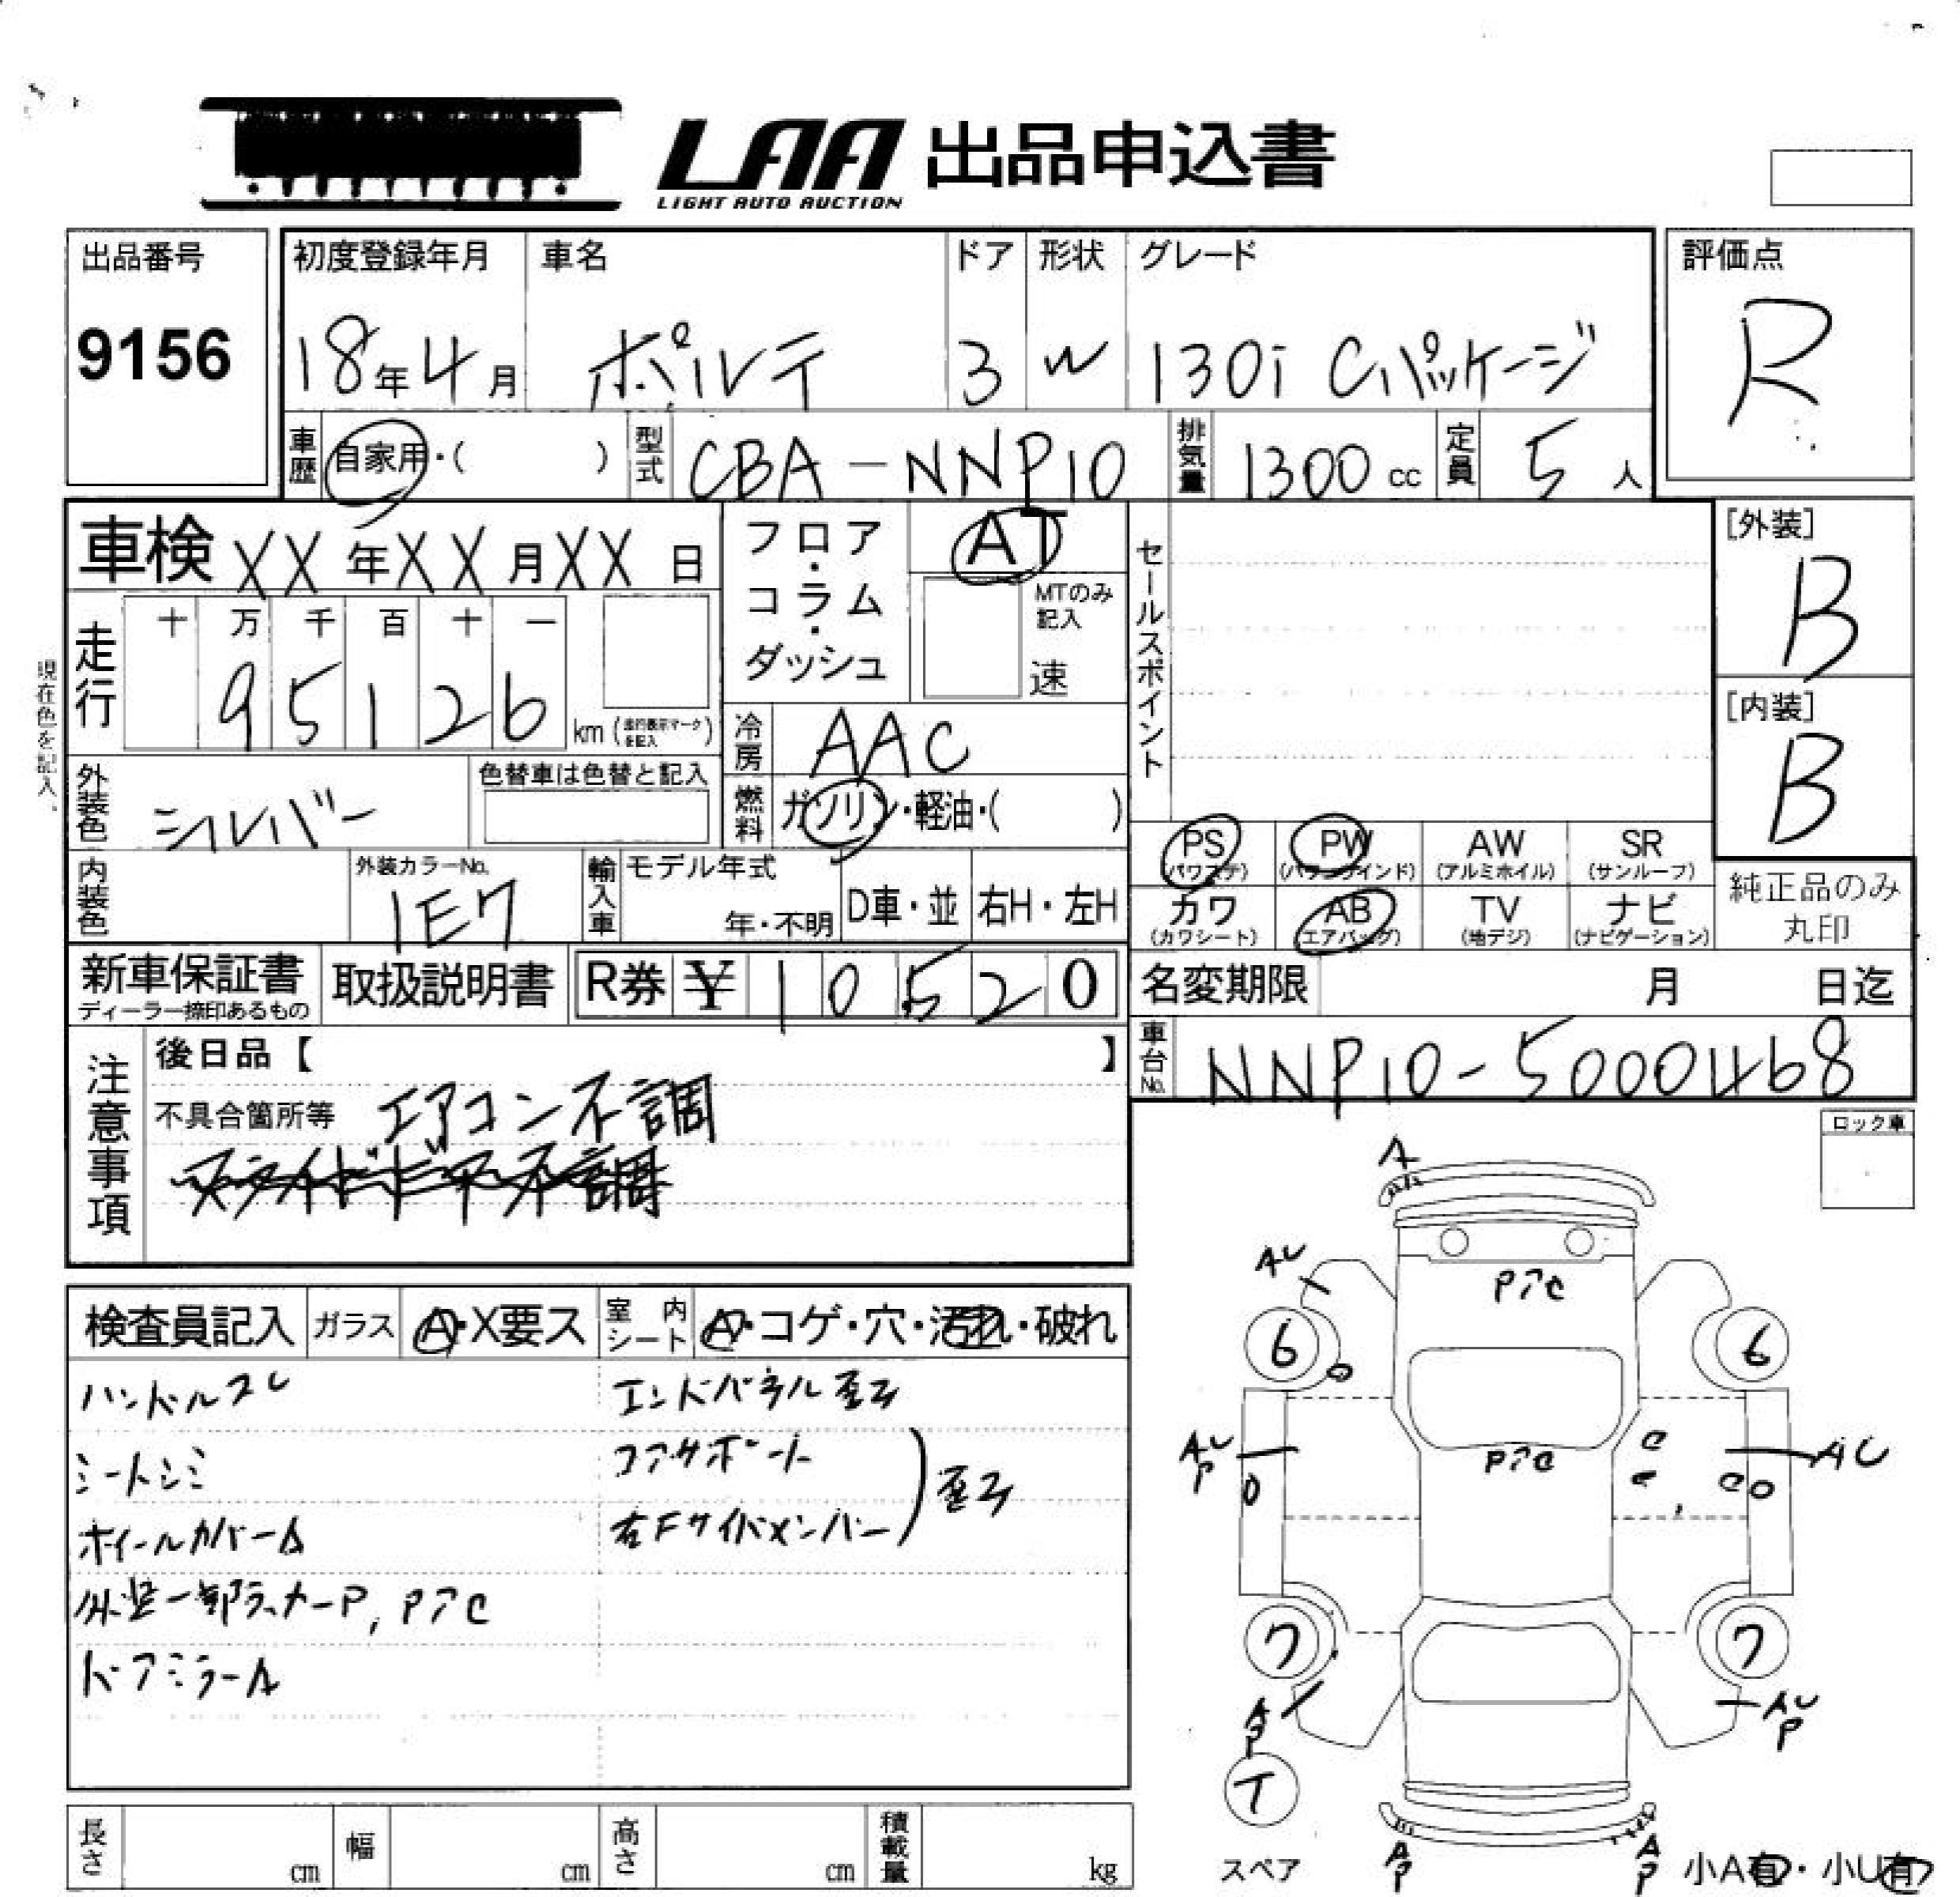 LAA 出品申込書
LIGHT AUTO AUCTION
出品番号
9156
初度登録年月 車名 ドア 形状 グレード
18年4月 ポルテ 3 W 130i Cパッケージ
評価点
R
車歴 自家用・( ) 型式 CBA-NNP10 排気量 1300cc 定員 5人
車検 XX年XX月XX日
フロア・コラム・ダッシュ
AT
MTのみ記入
速
セールスポイント
[外装]
B
[内装]
B
現在色を記入。
走行 十 万 千 百 十 一
95126 km (走行表示マークを記入)
冷房 AAC
外装色 シルバー 色替車は色替と記入
燃料 ガソリン・軽油・( )
PS (パワステ) PW (パワーウインド) AW (アルミホイル) SR (サンルーフ)
カワ (カワシート) AB (エアバッグ) TV (地デジ) ナビ (ナビゲーション)
純正品のみ丸印
内装色 外装カラーNo. 1E7 輸入車 モデル年式 年・不明 D車・並 右H・左H
新車保証書 ディーラー捺印あるもの 取扱説明書 R券 ¥10520
名変期限 月 日迄
車台No. NNP10-5000468
注意事項
後日品【 】
不具合箇所等 エアコン不調
スライドドア不調
ロック車
検査員記入 ガラス A・X要ス 室内シート A・コゲ・穴・汚れ・破れ
ハンドルスレ エンドパネル歪ミ
シートシミ コアサポート
ホイールカバーA 右Fサイドメンバー 歪ミ
外装一部ラッカーP, Pアc
ドアミラーA
A
AU
Pアc
6 6
AU
P
Pアc
AU
7 7
A
P
AU
P
T
スペア
A
P
A
P
小A有・小U有
長さ cm 幅 cm 高さ cm 積載量 kg